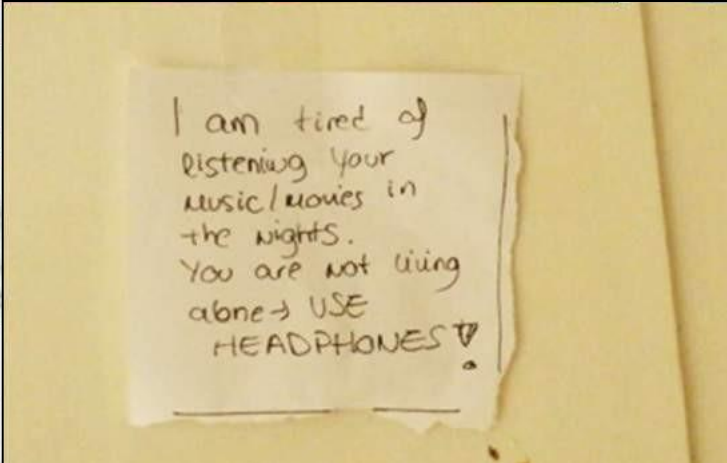 I am tired of
listening your
music/movies in
the nights.
You are not living
alone → USE
HEADPHONES!